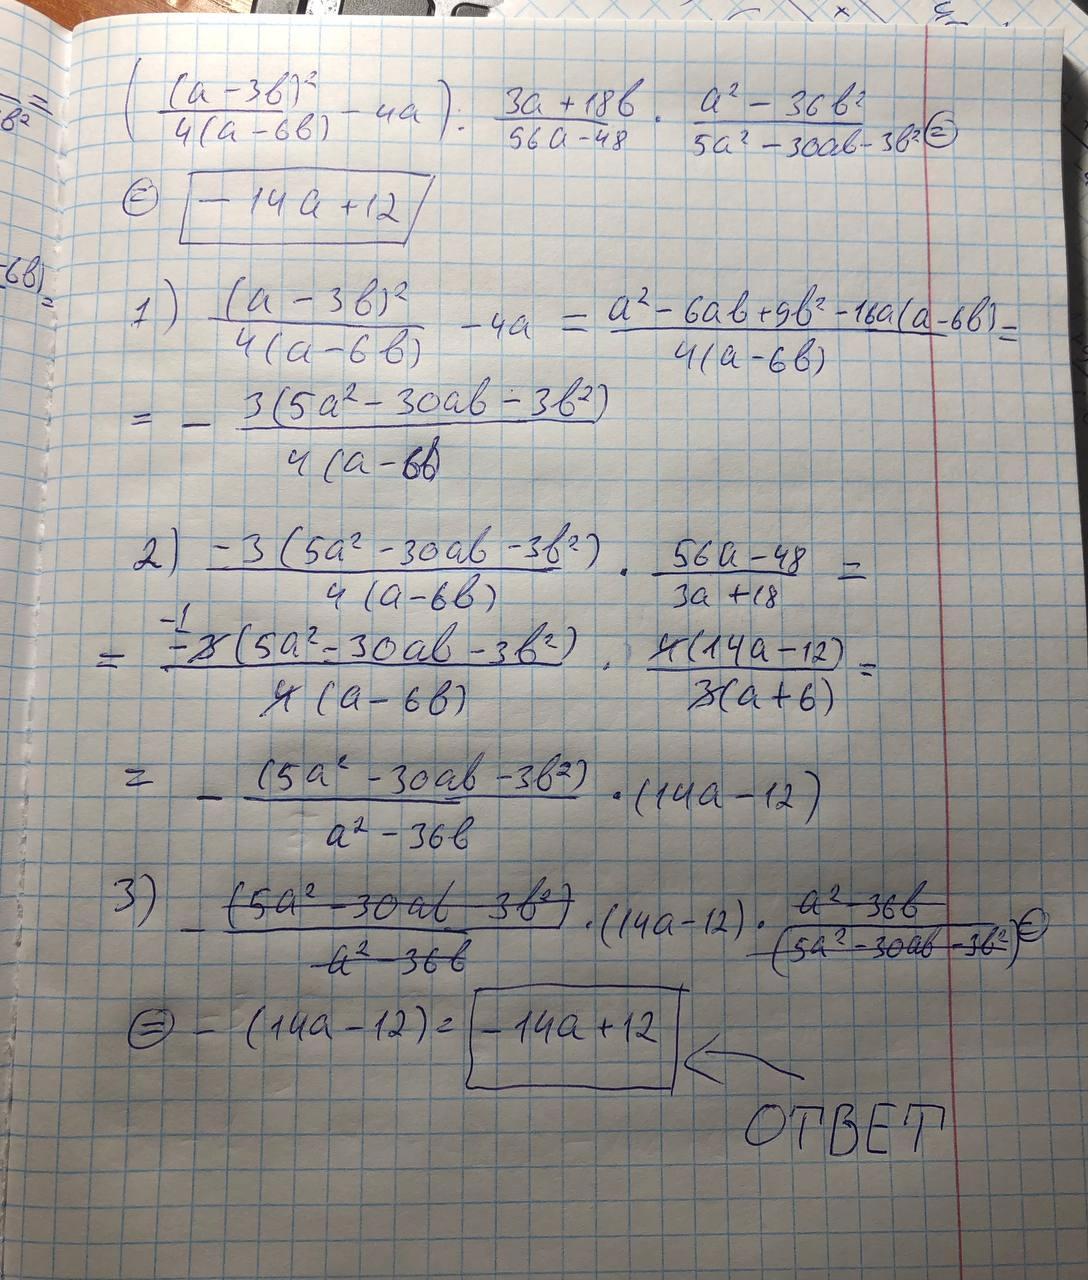 (a-3b)²/4(a-6b) - 4a) : 3a+18b/56a-48 · a²-36b²/5a²-30ab-3b² =
= -14a+12
1) (a-3b)²/4(a-6b) - 4a = a²-6ab+9b²-16a(a-6b)/4(a-6b) =
= - 3(5a²-30ab-3b²)/4(a-6b
2) -3(5a²-30ab-3b²)/4(a-6b) · 56a-48/3a+18 =
= -1 -3(5a²-30ab-3b²)/4(a-6b) · 4(14a-12)/3(a+6) =
= - (5a²-30ab-3b²)/a²-36b · (14a-12)
3) - (5a²-30ab-3b²)/a²-36b · (14a-12) · a²-36b/(5a²-30ab-3b²) =
= -(14a-12) = -14a+12
ОТВЕТ